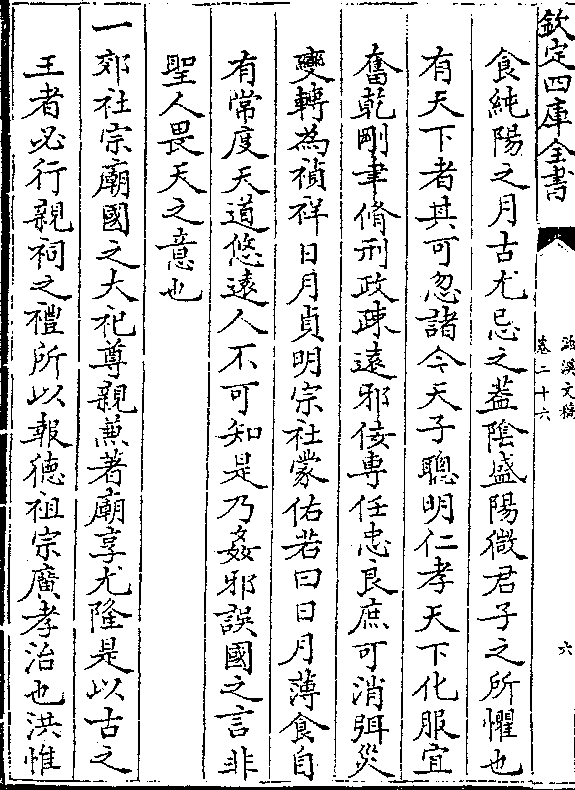 欽定四庫全書
卷二十六
六
食純陽之月古尤忌之葢陰盛陽微君子之所懼也
有天下者其可忽諸今天子聰明仁孝天下化服宜
奮乾剛聿脩刑政疎遠邪佞専任忠良庶可消弭災
變轉為禎祥日月貞明宗社蒙佑若曰日月薄食自
有常度天道悠遠人不可知是乃姦邪誤國之言非
聖人畏天之意也
一郊社宗廟國之大祀尊親兼著廟享尤隆是以古之
王者必行親祠之禮所以報徳祖宗廣孝治也洪惟